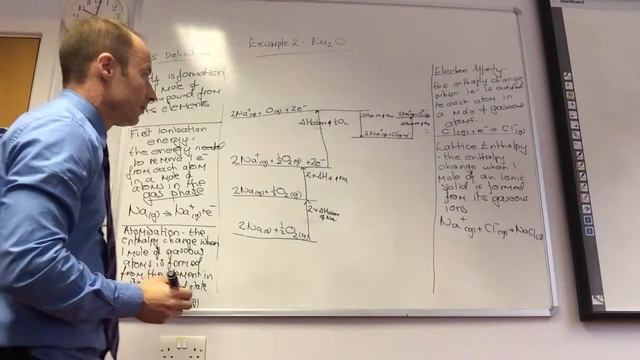 Example 2 - Na2O
is formation
1 mole of
compound from
its elements
First Ionisation
energy-
the energy needed
to remove 1 e-
from each atom
in a mole of
atoms in the
gas phase
Na(g) → Na+(g) + e-
Atomisation - the
enthalpy change when
1 mole of gaseous
atoms is formed
from the element in
2Na+(g) + O(g) + 2e-
2Na+(g) + ½O2(g) + 2e-
2Na(g) + ½O2(g)
2Na(s) + ½O2(g)
Electron Affinity-
the enthalpy change
when 1e- is added
to each atom in
a mole of gaseous
atoms.
Cl(g) + e- → Cl-(g)
Lattice Enthalpy
- the enthalpy
change when 1
mole of an ionic
solid is formed
from its gaseous
ions
Na+(g) + Cl-(g) → NaCl(s)